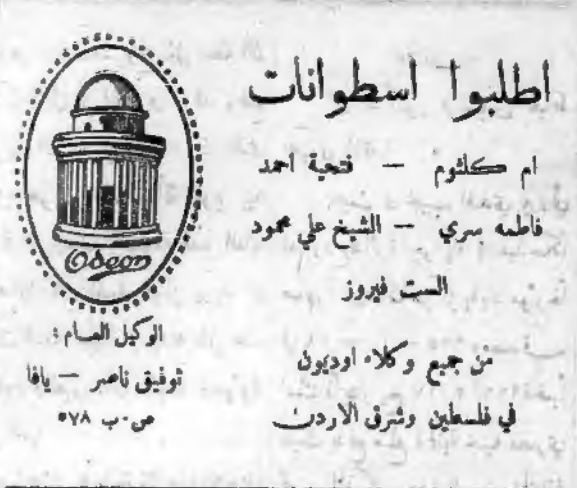 اطلبوا اسطوانات
ام كلثوم — فتحية احمد
فاطمه سري — الشيخ علي محمود
الست فيروز
من جميع وكلاء اوديون
في فلسطين وشرق الاردن
Odeon
الوكيل العام :
توفيق ناصر — يافا
ص. ب ٥٧٨